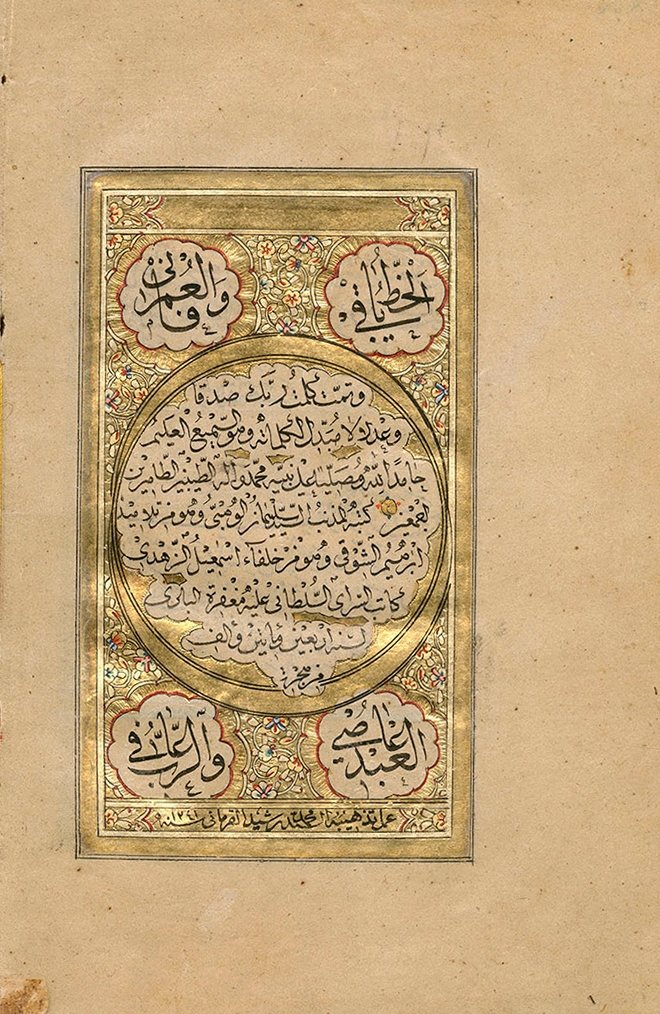 الخط باقي
والعمر فاني
وتمت كلمت ربك صدقا
وعدلا لا مبدل لكلماته وهو السميع العليم
حامدا لله ومصليا على نبيه محمد وآله الطيبين الطاهرين
اجمعين كتبه المذنب السيد سليمان الوهبي وهو من تلاميذ
ابرهيم الشوقي وهو من خلفاء اسمعيل الزهدي
كاتب السراي السلطاني عليه مغفرة الباري
لسنه اربعين و مأتين والف
من هجرة
العبد عاصي
والرب عافي
عمل تذهيبه محمد رشيد القرماني سنه ١٢٤١